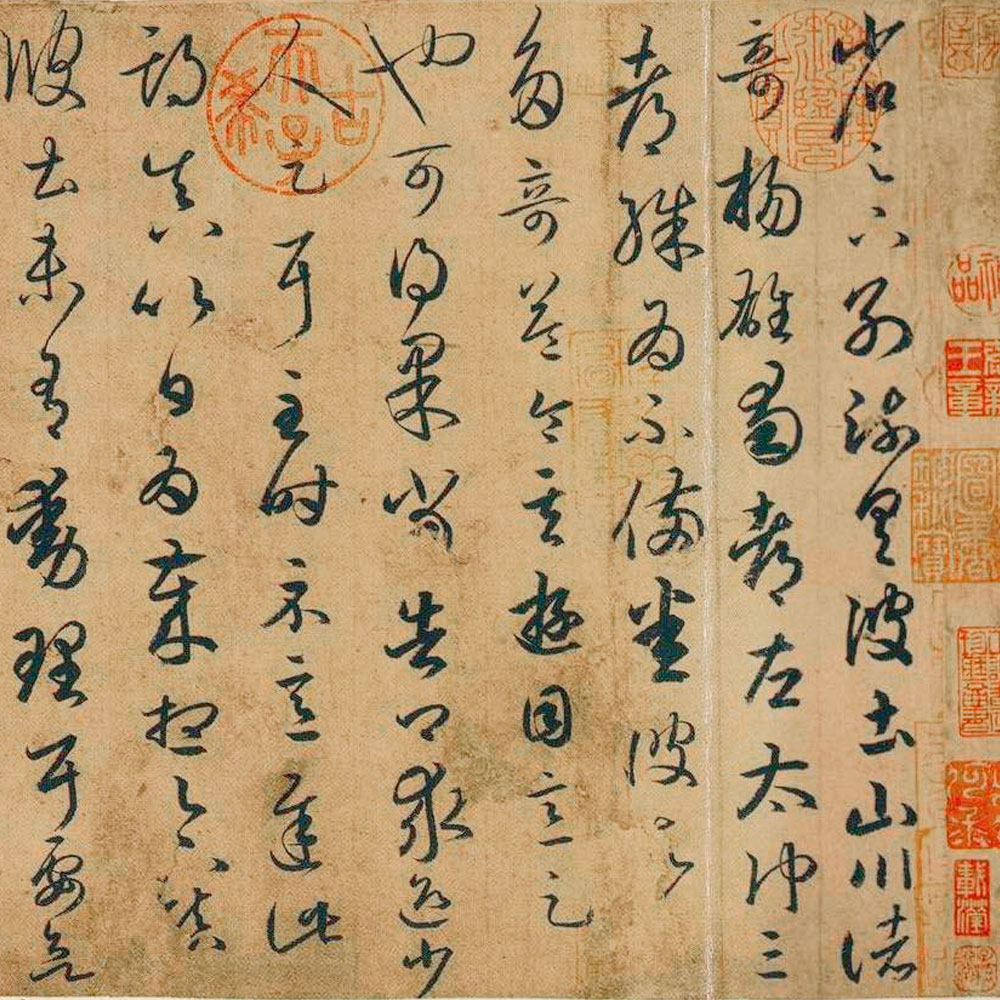 省足下別疏具彼土山川諸
奇楊雄蜀都左太沖三
都殊為不備悉彼故為
多奇益令其遊目意足
也可得果當告卿求迎少
人足耳至時示意遲此
期真以日為歲想足下鎮
彼土未有動理耳要欲
古稀天子